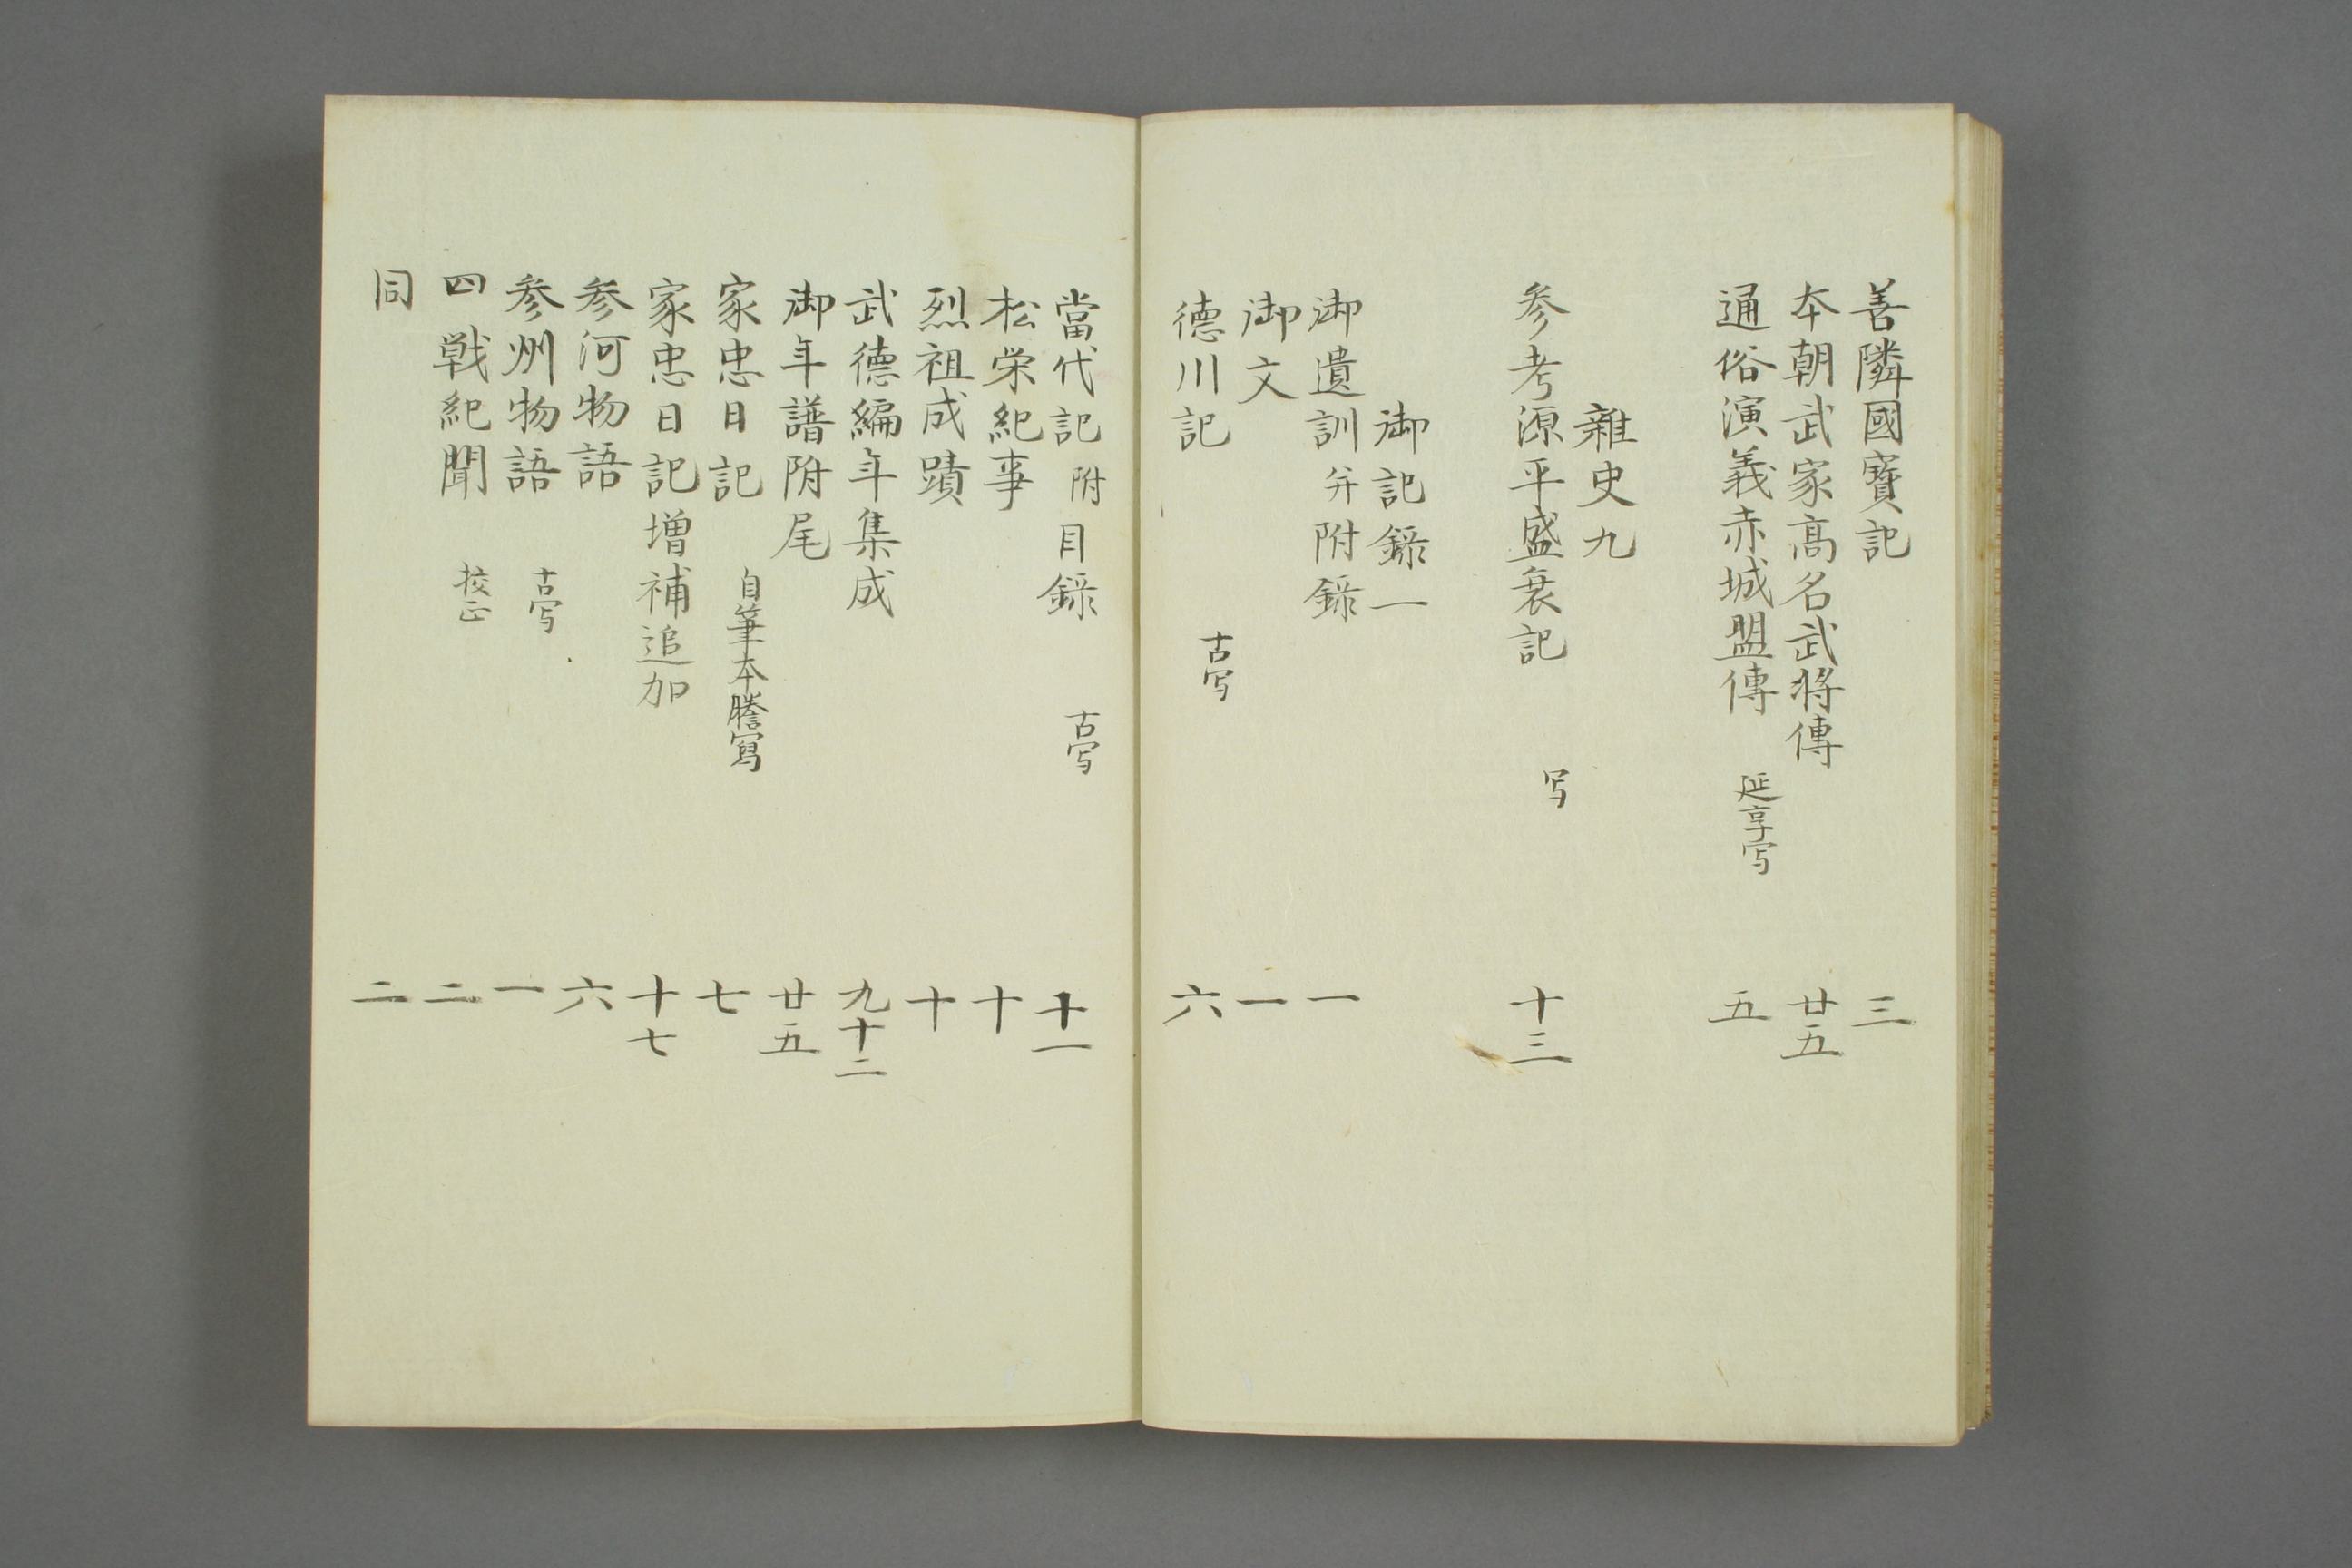 善隣國寳記 三
本朝武家高名武将傳 廿五
通俗演義赤城盟傳 延享写 五
雜史九
参考源平盛衰記 写 十三
御記錄一
御遺訓并附錄 一
御文 一
徳川記 古写 六
當代記附目錄 古写 十一
松栄紀事 十
烈祖成蹟 十
武徳編年集成 九十二
御年譜附尾 廿五
家忠日記 自筆本謄寫 七
家忠日記増補追加 十七
参河物語 六
参州物語 古写 一
四戦紀聞 校正 二
同 二